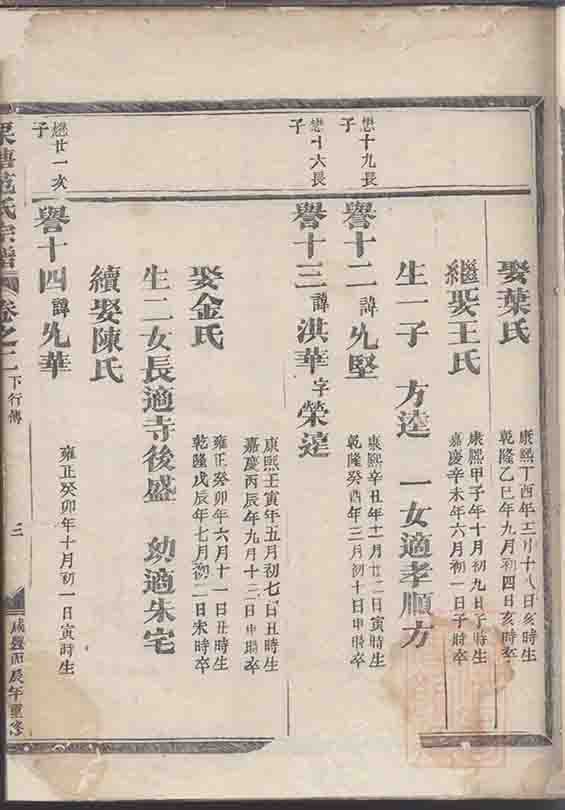 娶葉氏
康熙丁酉年三月十八日亥時生
乾隆乙巳年九月初四日亥時卒
繼娶王氏
康熙甲子年十月初九日子時生
嘉慶辛未年六月初一日子時卒
生一子 方逵 一女適孝順方
懋十九長
子
譽十二諱允堅
康熙辛丑年十一月廿二日寅時生
乾隆癸酉年三月初十日申時卒
懋十六長
子
譽十三諱洪華字榮達
康熙壬寅年五月初七日丑時生
嘉慶丙辰年九月十三日申時卒
娶金氏
雍正癸卯年六月十一日丑時生
乾隆戊辰年七月初二日未時卒
生二女長適寺後盛 幼適朱宅
續娶陳氏
懋廿一次
子
譽十四諱允華
雍正癸卯年十月初一日寅時生
范氏宗譜 卷之二 下行傳 三 咸豐丙辰年重修